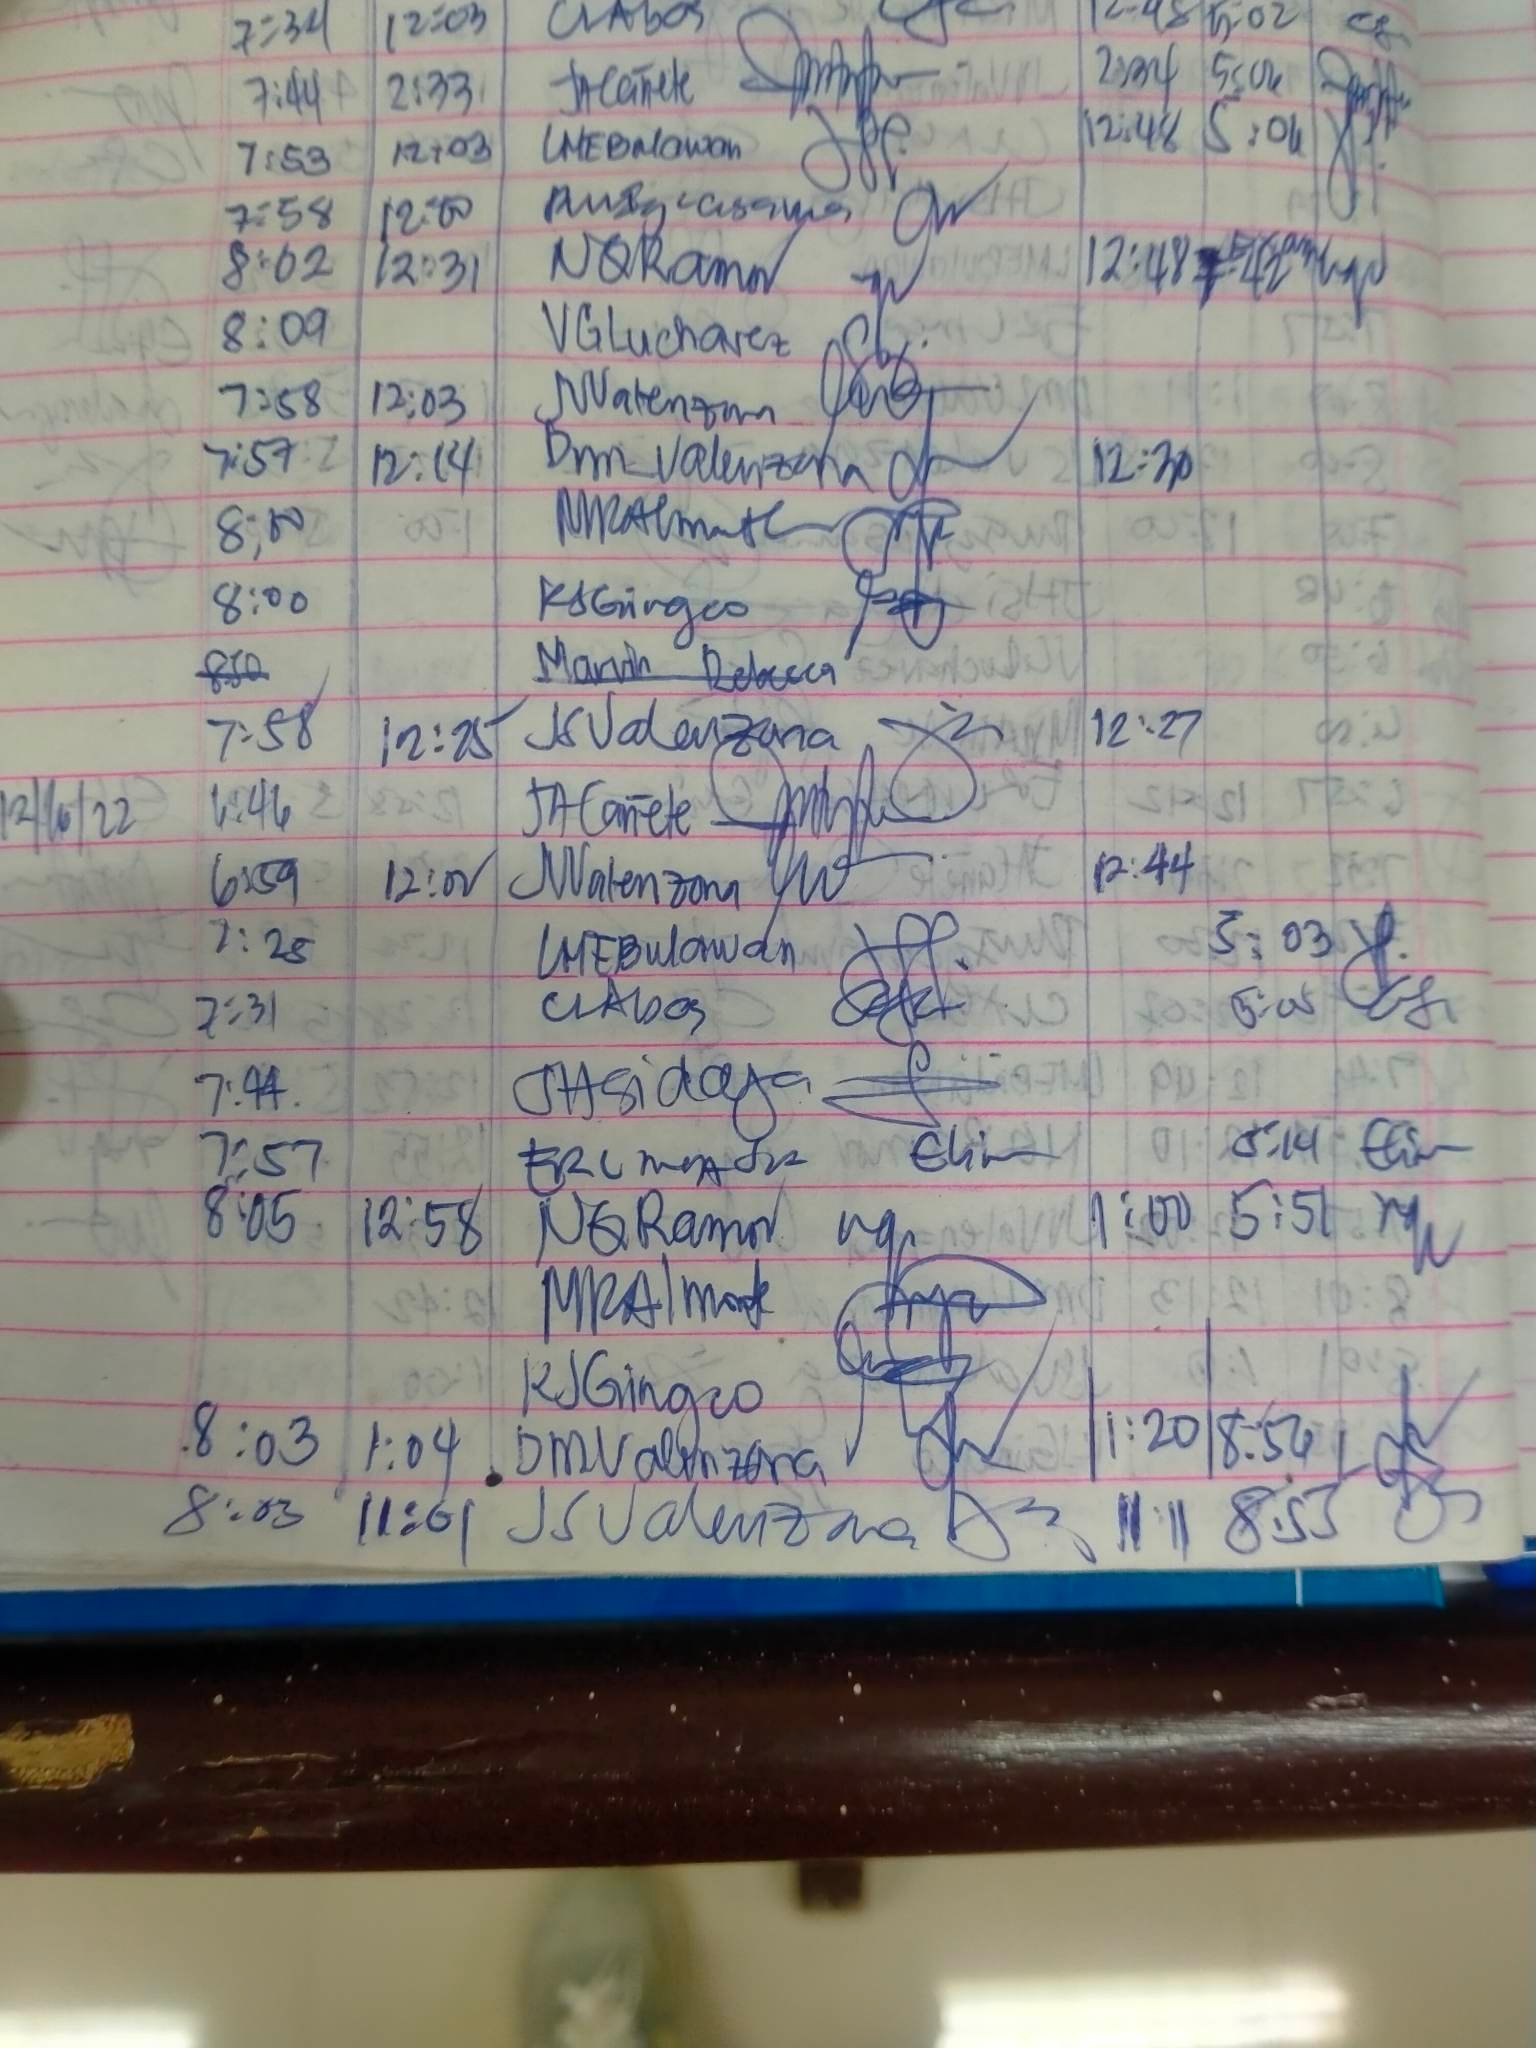 7:34 12:03 CLAbos 12:48 5:02
7:44 2:33 JACañete 2:34 5:06
7:53 12:03 LMEBulawan 12:48 5:06
7:58 12:00
8:02 12:31 NQRamor 12:48
8:09 VGLucharez
7:58 12:03 JVValenzona
7:57 12:14 DMValenzona 12:30
8:00 MRAlmonte
8:00 KJGingco
Marvin Rebecca
7:58 12:25 JSValenzona 12:27
12/6/22 6:46 JACañete
6:59 12:01 JVValenzona 12:44
7:25 LMEBulawan 5:03
7:31 CLAbos 5:05
7:44 JHSidaya
7:57 5:14
8:05 12:58 NQRamor 1:00 5:51
MRAlmonte
KJGingco
8:03 1:04 DMValenzona 1:20 8:56
8:03 11:01 JSValenzona 11:11 8:55